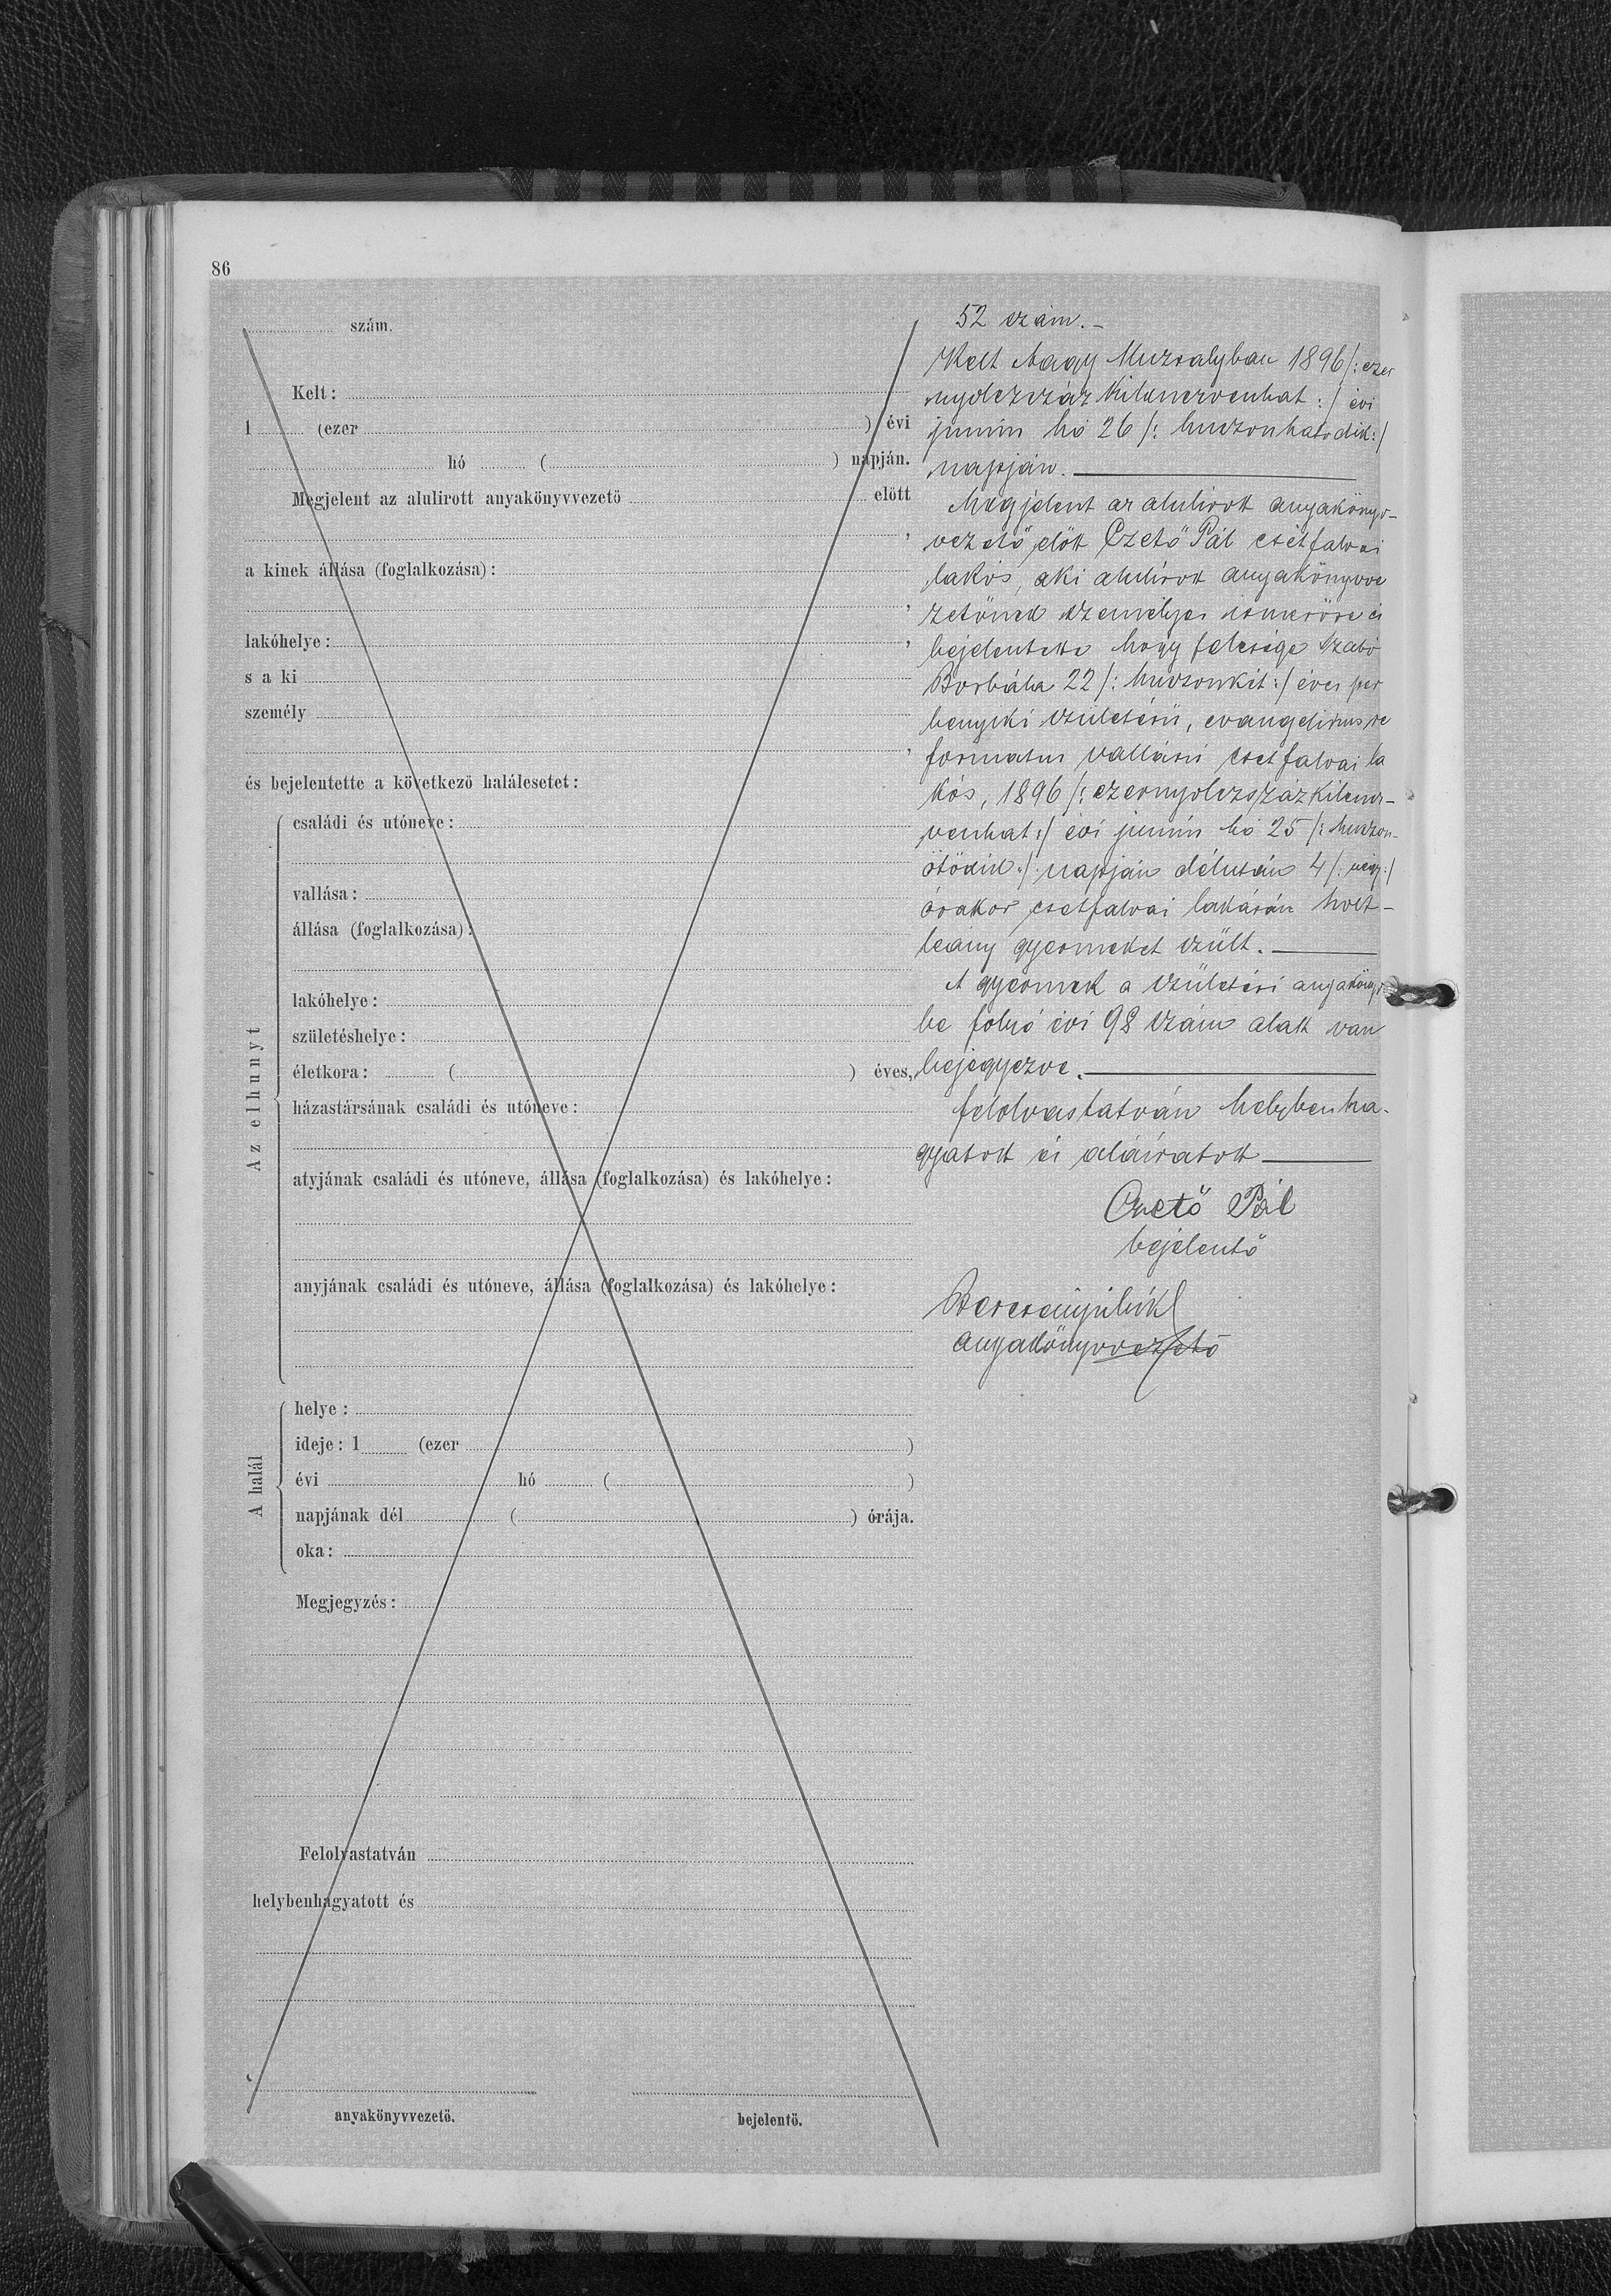 86
szám.
Kelt:
1 (ezer ) évi
hó ( ) napján.
Megjelent az alulirott anyakönyvvezető előtt
,
a kinek állása (foglalkozása):
,
lakóhelye: ,
s a ki
személy
,
és bejelentette a következő halálesetet:
Az elhunyt
családi és utóneve:
vallása:
állása (foglalkozása):
lakóhelye:
születéshelye:
életkora: ( ) éves,
házastársának családi és utóneve:
atyjának családi és utóneve, állása (foglalkozása) és lakóhelye:
anyjának családi és utóneve, állása (foglalkozása) és lakóhelye:
A halál
helye:
ideje: 1 (ezer )
évi hó ( )
napjának dél ( ) órája.
oka:
Megjegyzés:
Felolvastatván
helybenhagyatott és
anyakönyvvezető.
bejelentő.
52 szám.-
Kelt Nagy Muzsalyban 1896 /: ezer
nyolczszáz kilenczvenhat :/ évi
junius hó 26 /: huszonhatodik :/
napján.
Megjelent az alulirott anyakönyv-
vezető előtt Czető Pál csetfalvai
lakós, aki alulirott anyakönyvve
zetőnek személyes ismerőse és
bejelentette hogy felesége Szabó
Borbála 22 /: huszonkét :/ éves per
benyiki születésü, evangelicus re
formatus vallásu csetfalvai la
kós, 1896 /: ezernyolczszázkilencz-
venhat :/ évi junius hó 25 /: huszon-
ötödik :/ napján délután 4 /: négy :/
órakor csetfalvai lakásán holt-
leány gyermeket szült.
A gyermek a születési anyakönyv
be folyó évi 98 szám alatt van
bejegyezve.
felolvastatván helybenha-
gyatott és aláiratott
Czető Pál
bejelentő
anyakönyvvezető